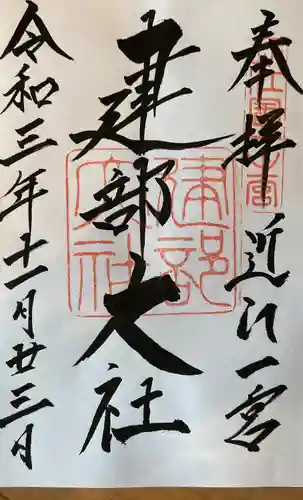 奉拝 近江一宮
建部大社
令和三年十一月廿三日
建部大社